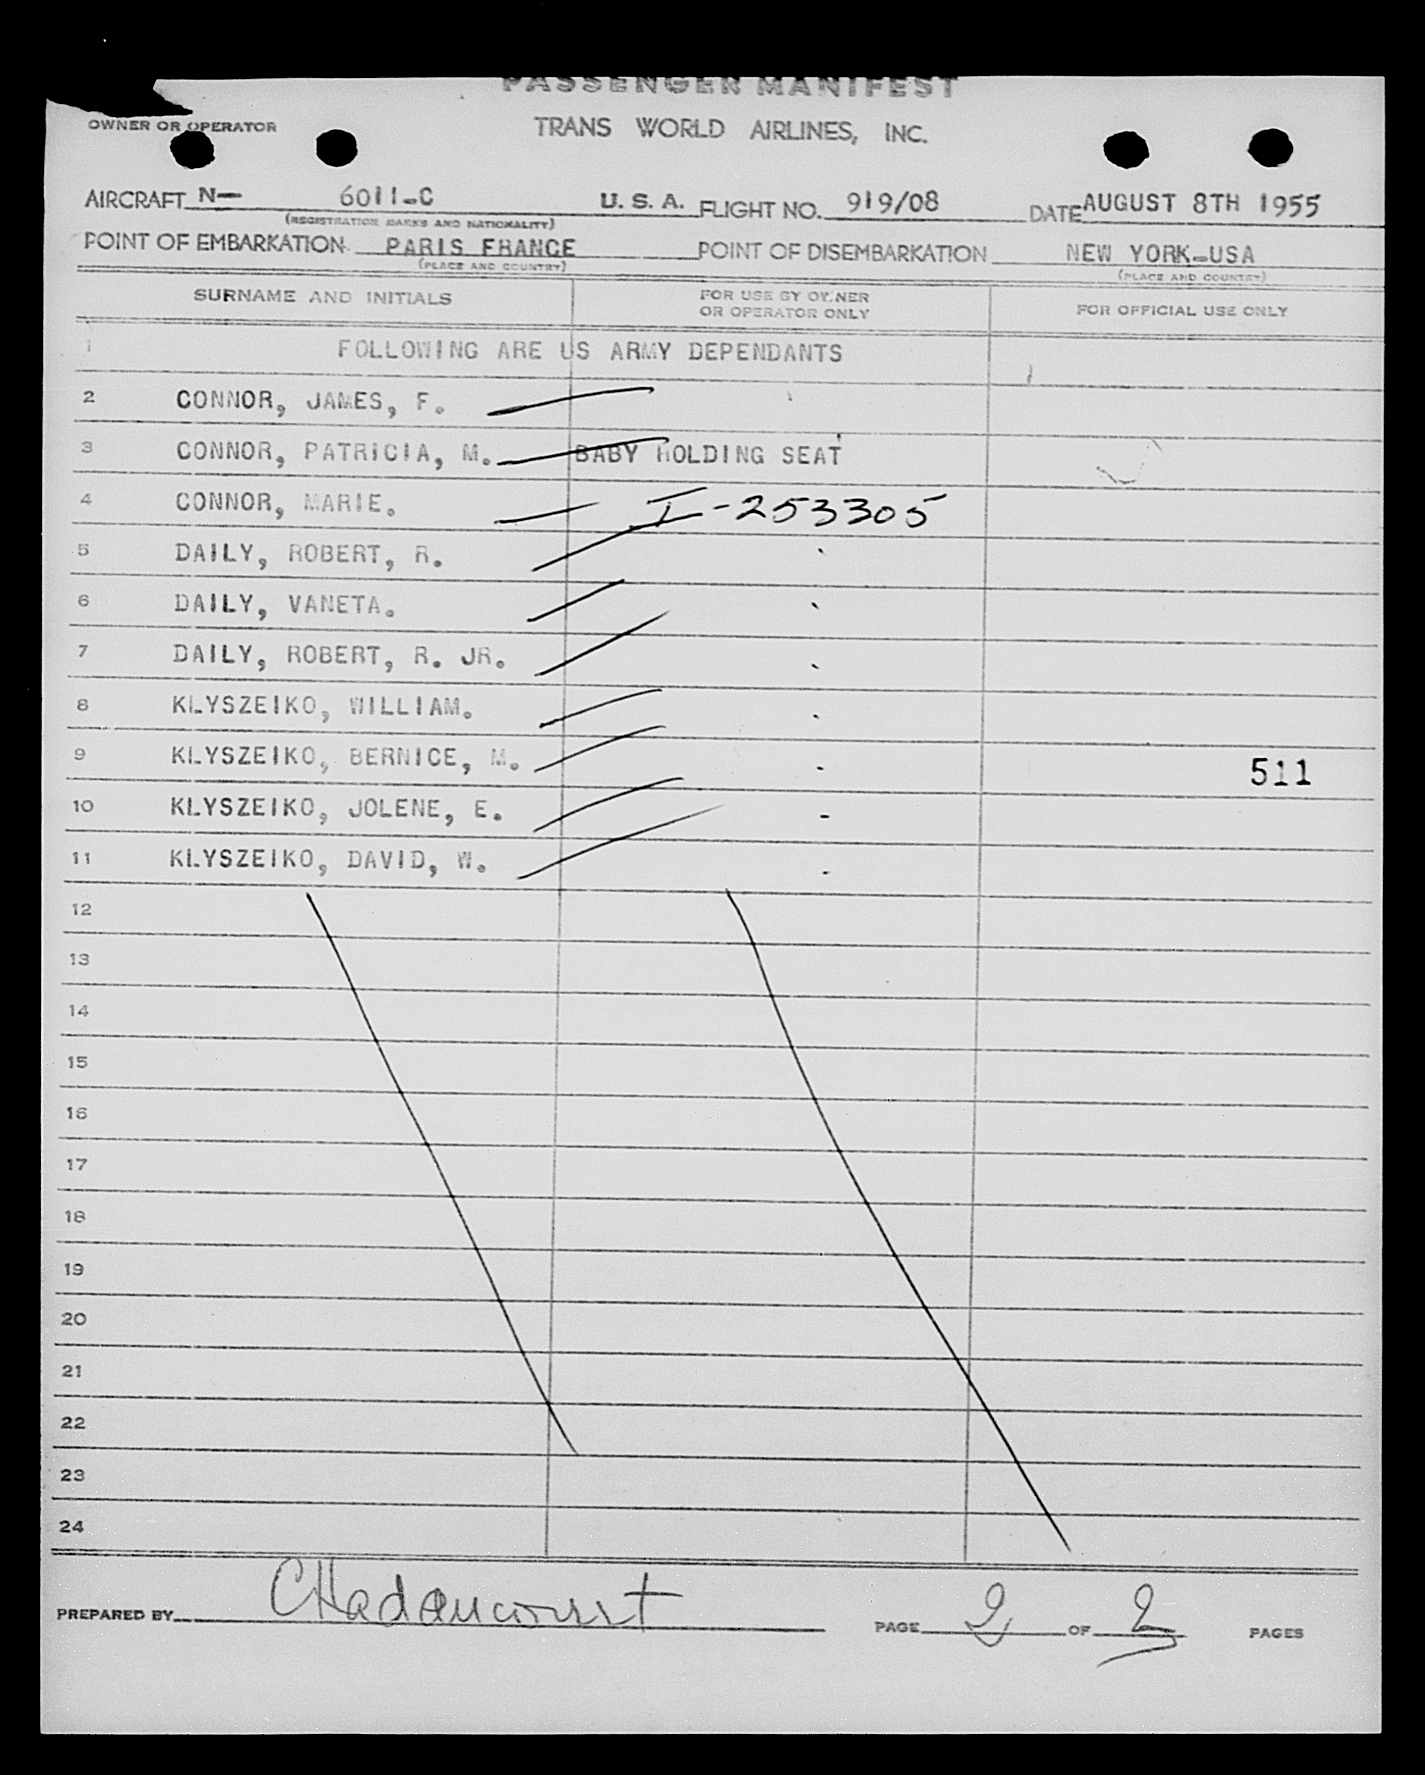 PASSENGER MANIFEST
OWNER OR OPERATOR TRANS WORLD AIRLINES, INC.
AIRCRAFT N- 6011-C U. S. A. FLIGHT NO. 919/08 DATE AUGUST 8TH 1955
(REGISTRATION MARKS AND NATIONALITY)
POINT OF EMBARKATION PARIS FRANCE POINT OF DISEMBARKATION NEW YORK-USA
(PLACE AND COUNTRY) (PLACE AND COUNTRY)
SURNAME AND INITIALS FOR USE BY OWNER OR OPERATOR ONLY FOR OFFICIAL USE ONLY
1 FOLLOWING ARE US ARMY DEPENDANTS
2 CONNOR, JAMES, F.
3 CONNOR, PATRICIA, M. BABY HOLDING SEAT
4 CONNOR, MARIE. I-253305
5 DAILY, ROBERT, R.
6 DAILY, VANETA.
7 DAILY, ROBERT, R. JR.
8 KLYSZEIKO, WILLIAM.
9 KLYSZEIKO, BERNICE, M. 511
10 KLYSZEIKO, JOLENE, E.
11 KLYSZEIKO, DAVID, W.
12
13
14
15
16
17
18
19
20
21
22
23
24
PREPARED BY PAGE 2 OF 2 PAGES